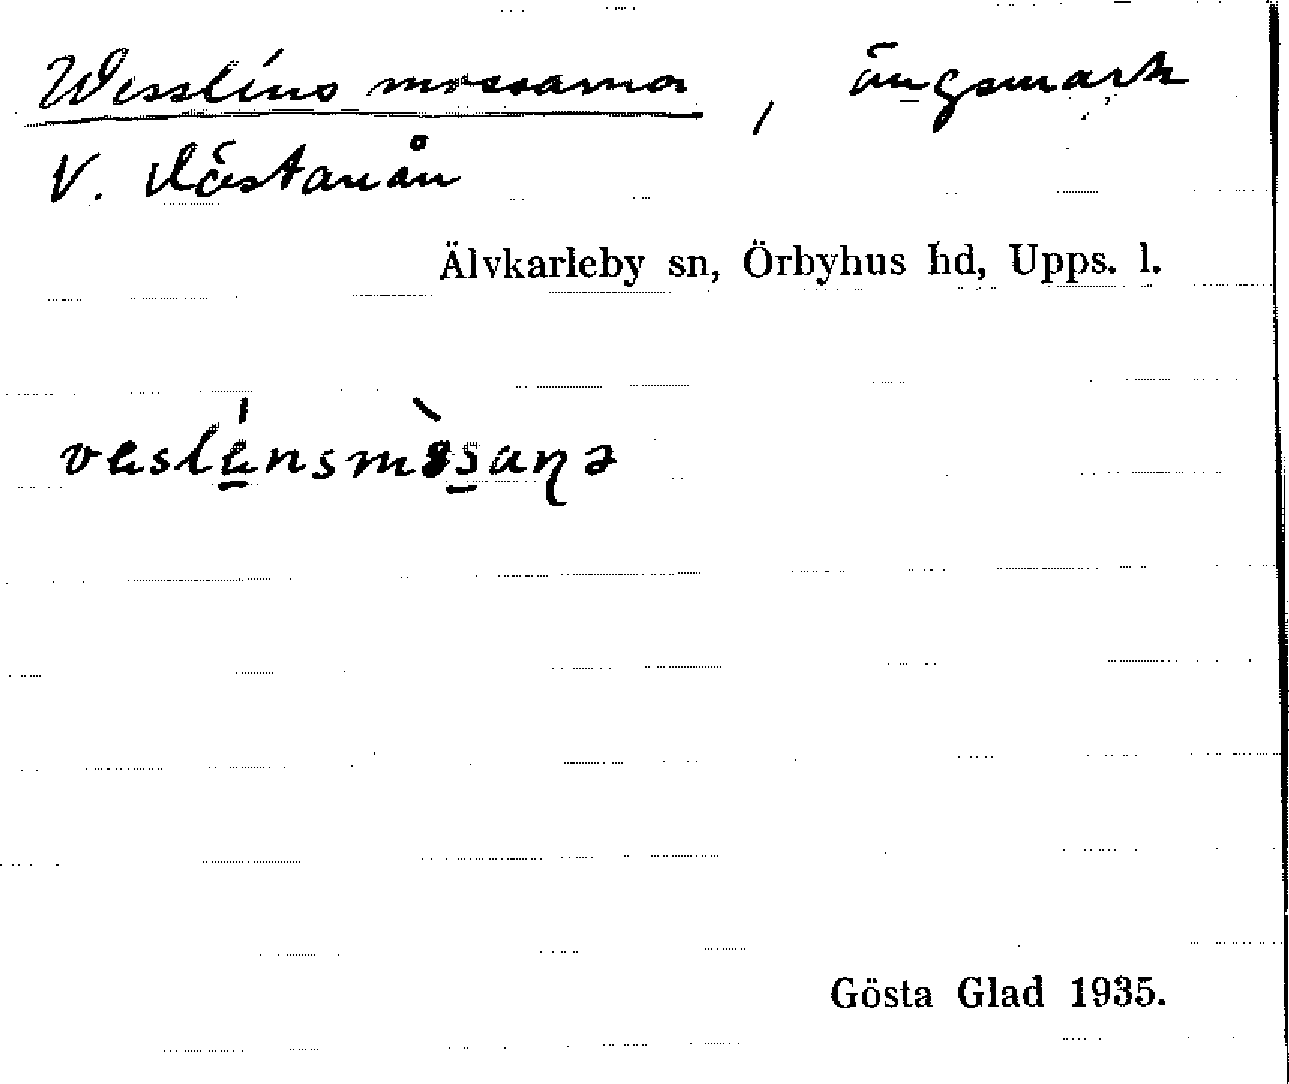 Wessléns mossarna, ängsmark
V. Västanån
Älvkarleby sn, Örbyhus hd, Upps. l.
Gösta Glad 1935.